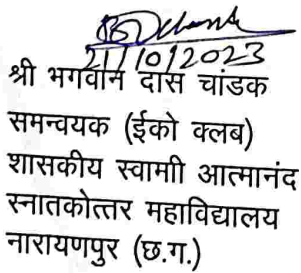 21/10/2023
श्री भगवान दास चांडक
समन्वयक (ईको क्लब)
शासकीय स्वामाी आत्मानंद
स्नातकोत्तर महाविद्यालय
नारायणपुर (छ.ग.)